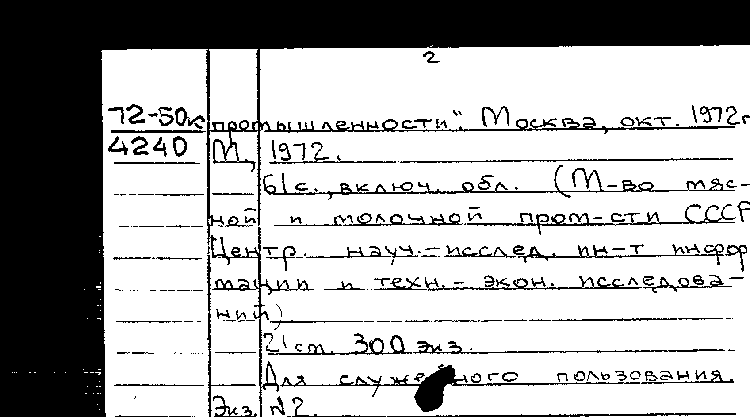 2
72-50к промышленности". Москва, окт. 1972г
4240 М., 1972.
61с., включ. обл. (М-во мяс-
ной и молочной пром-сти СССР
Центр. науч.-исслед. ин-т инфор
мации и техн.-экон. исследова-
ний)
21 см. 300 экз.
Для служебного пользования.
Экз. №2.